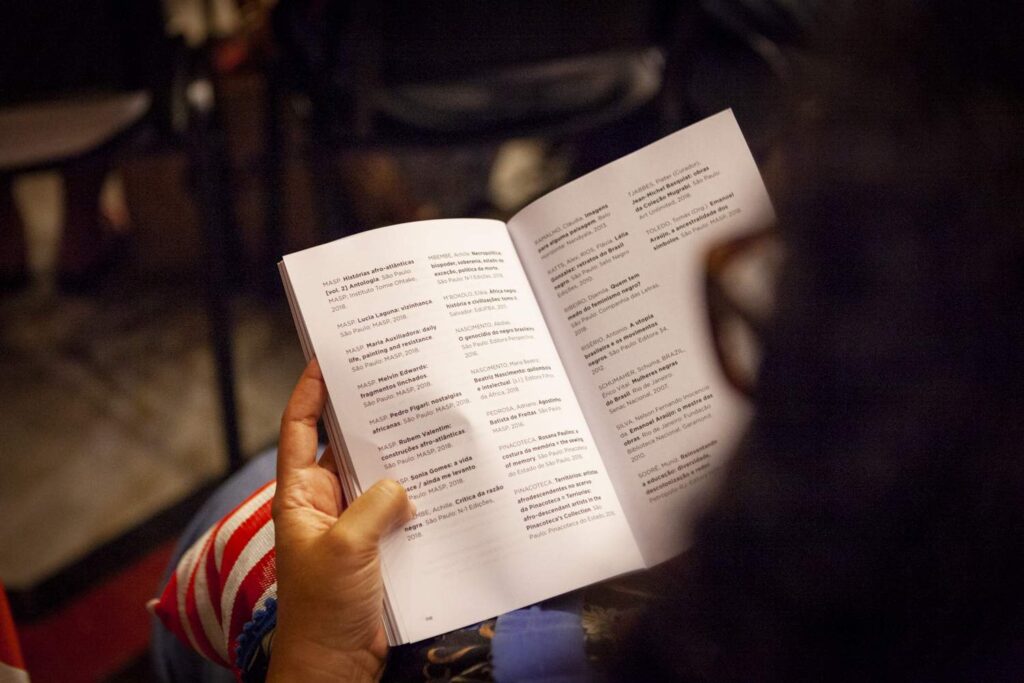 MASP. Histórias afro-atlânticas
[vol. 2] Antologia. São Paulo:
MASP, Instituto Tomie Ohtake,
2018.
MASP. Lucia Laguna: vizinhança
São Paulo: MASP, 2018.
MASP. Maria Auxiliadora: daily
life, painting and resistance.
São Paulo: MASP, 2018.
MASP. Melvin Edwards:
fragmentos linchados.
São Paulo: MASP, 2018.
MASP. Pedro Figari: nostalgias
africanas. São Paulo: MASP, 2018.
MASP. Rubem Valentim:
construções afro-atlânticas.
São Paulo: MASP, 2018.
MASP. Sonia Gomes: a vida
/ ainda me levanto
São Paulo: MASP, 2018.
Achille. Crítica da razão
negra. São Paulo: N-1 Edições,
2018.
MBEMBE, Achille. Necropolítica,
biopoder, soberania, estado de
exceção, política da morte.
São Paulo: N-1 Edições, 2018.
M'BOKOLO, Elikia. África negra
história e civilizações: tomo
Salvador: EdUFBA,
NASCIMENTO, Abdias.
O genocídio do negro brasileiro
São Paulo: Editora Perspectiva,
2016.
NASCIMENTO, Maria Beatriz.
Beatriz Nascimento: quilombola
e intelectual. Editora Filhos
da África, 2018.
PEDROSA, Adriano. Agostinho
Batista de Freitas. São Paulo:
MASP, 2016.
PINACOTECA. Rosana Paulino: a
costura da memória = the sewing
of memory. São Paulo: Pinacoteca
do Estado de São Paulo, 2018.
PINACOTECA. Territórios: artistas
afrodescendentes no acervo
da Pinacoteca = Territories:
afro-descendant artists in the
Pinacoteca's Collection. São
Paulo: Pinacoteca do Estado,
RAMALHO, Claudia. Imagens
para alguma paisagem. Belo
Horizonte: Nandyala, 2013.
RATTS, Alex; RIOS, Flávia. Lélia
Gonzalez: retratos do Brasil
negro. São Paulo: Selo Negro
Edições, 2010.
RIBEIRO, Djamila. Quem tem
medo do feminismo negro?
São Paulo: Companhia das Letras,
2018.
RISÉRIO, Antonio. A utopia
brasileira e os movimentos
negros. São Paulo: Editora 34,
2012.
SCHUMAHER, Schuma; BRAZIL,
Érico Vital. Mulheres negras
do Brasil. Rio de Janeiro:
Senac Nacional, 2007.
SILVA, Nelson Fernando Inocencio
da. Emanoel Araújo: o mestre das
obras. Rio de Janeiro: Fundação
Biblioteca Nacional, Garamond,
2010.
SODRÉ, Muniz. Reinventando
a educação: diversidade,
descolonização e redes
TJABBES, Pieter (Curador).
Jean-Michel Basquiat: obras
da Coleção Mugrabi. São Paulo:
Art Unlimited, 2018.
TOLEDO, Tomás (Org.). Emanoel
Araújo, a ancestralidade dos
símbolos. São Paulo: MASP, 2018.